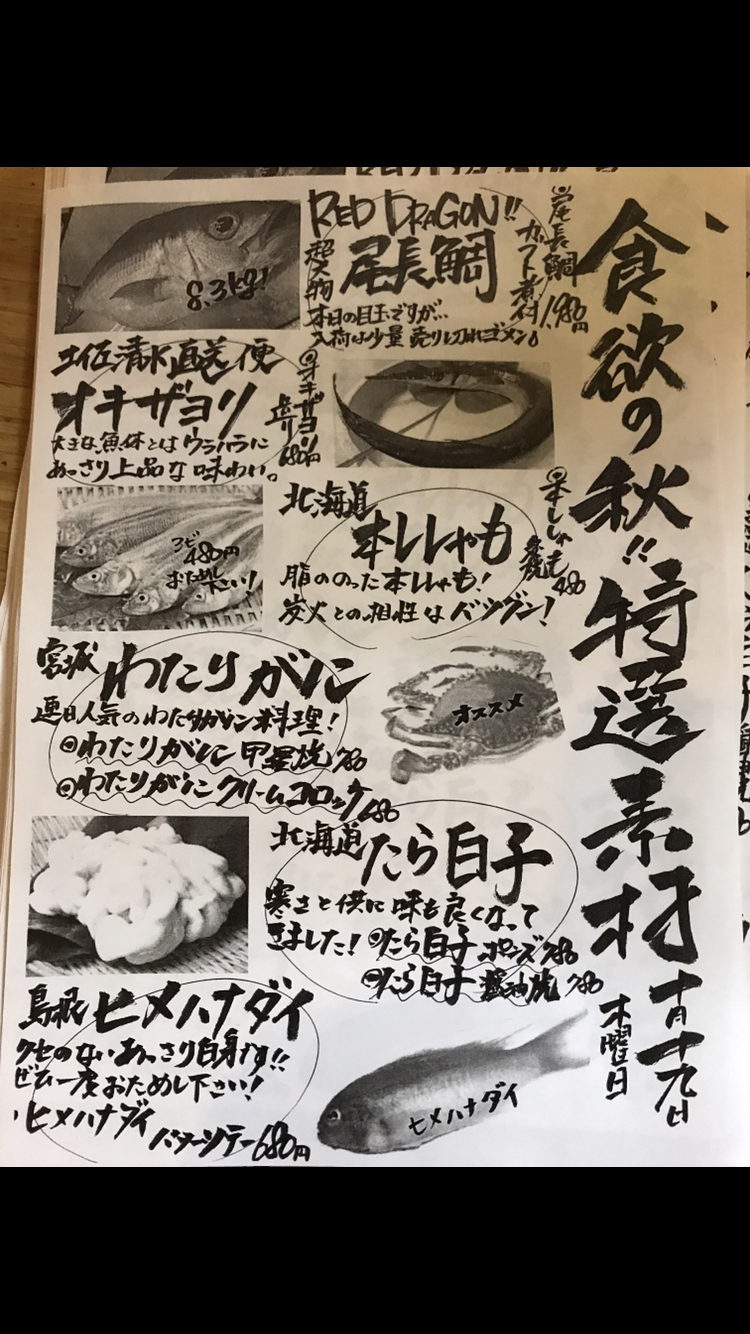 食欲の秋!!特選素材
十月十九日
木曜日
RED DRAGON!!
超大物
尾長鯛
本日の目玉ですが…
入荷は少量 売り切れゴメン。
尾長鯛
カブト煮付 1,980円
8.3kg!
土佐清水直送便
オキザヨリ
大きな魚体とはウラハラに
あっさり上品な味わい。
オキザヨリ
造り 680円
北海道
本ししゃも
脂ののった本ししゃも!
炭火との相性はバツグン!
本ししゃも
480
3ピ
480円
おためし下さい!
宮城 わたりがに
連日人気のわたりがに料理!
わたりがに甲羅焼 780
わたりがにクリームコロッケ 680
オススメ
北海道 たら白子
寒さと供に味も良くなって
きました! たら白子ポンズ 780
たら白子醤油焼 780
島根 ヒメハナダイ
クセのないあっさり白身です!!
ぜひ一度おためし下さい!
・ヒメハナダイ
バターソテー 680円
ヒメハナダイ